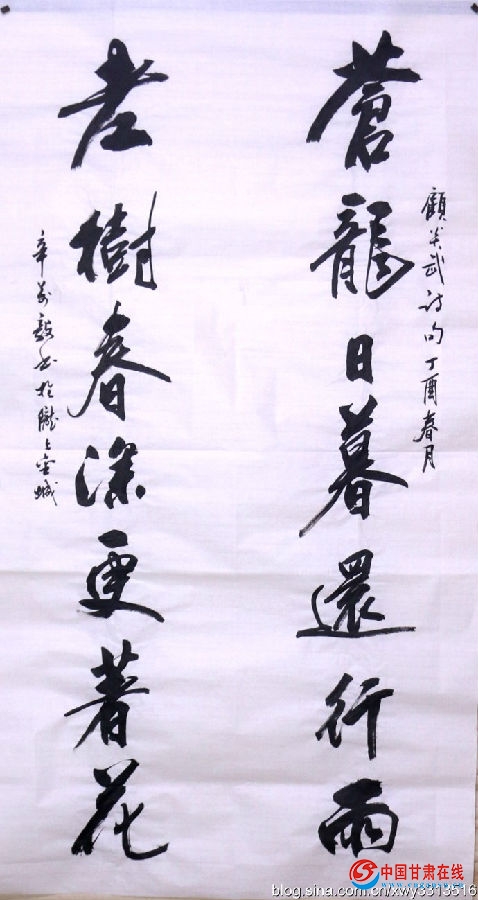 顧炎武诗句丁酉春月
蒼龍日暮還行雨
老樹春深更著花
辛萬毅书於隴上金城
中国甘肃在线
blog.sina.com.cn/xwy3313516